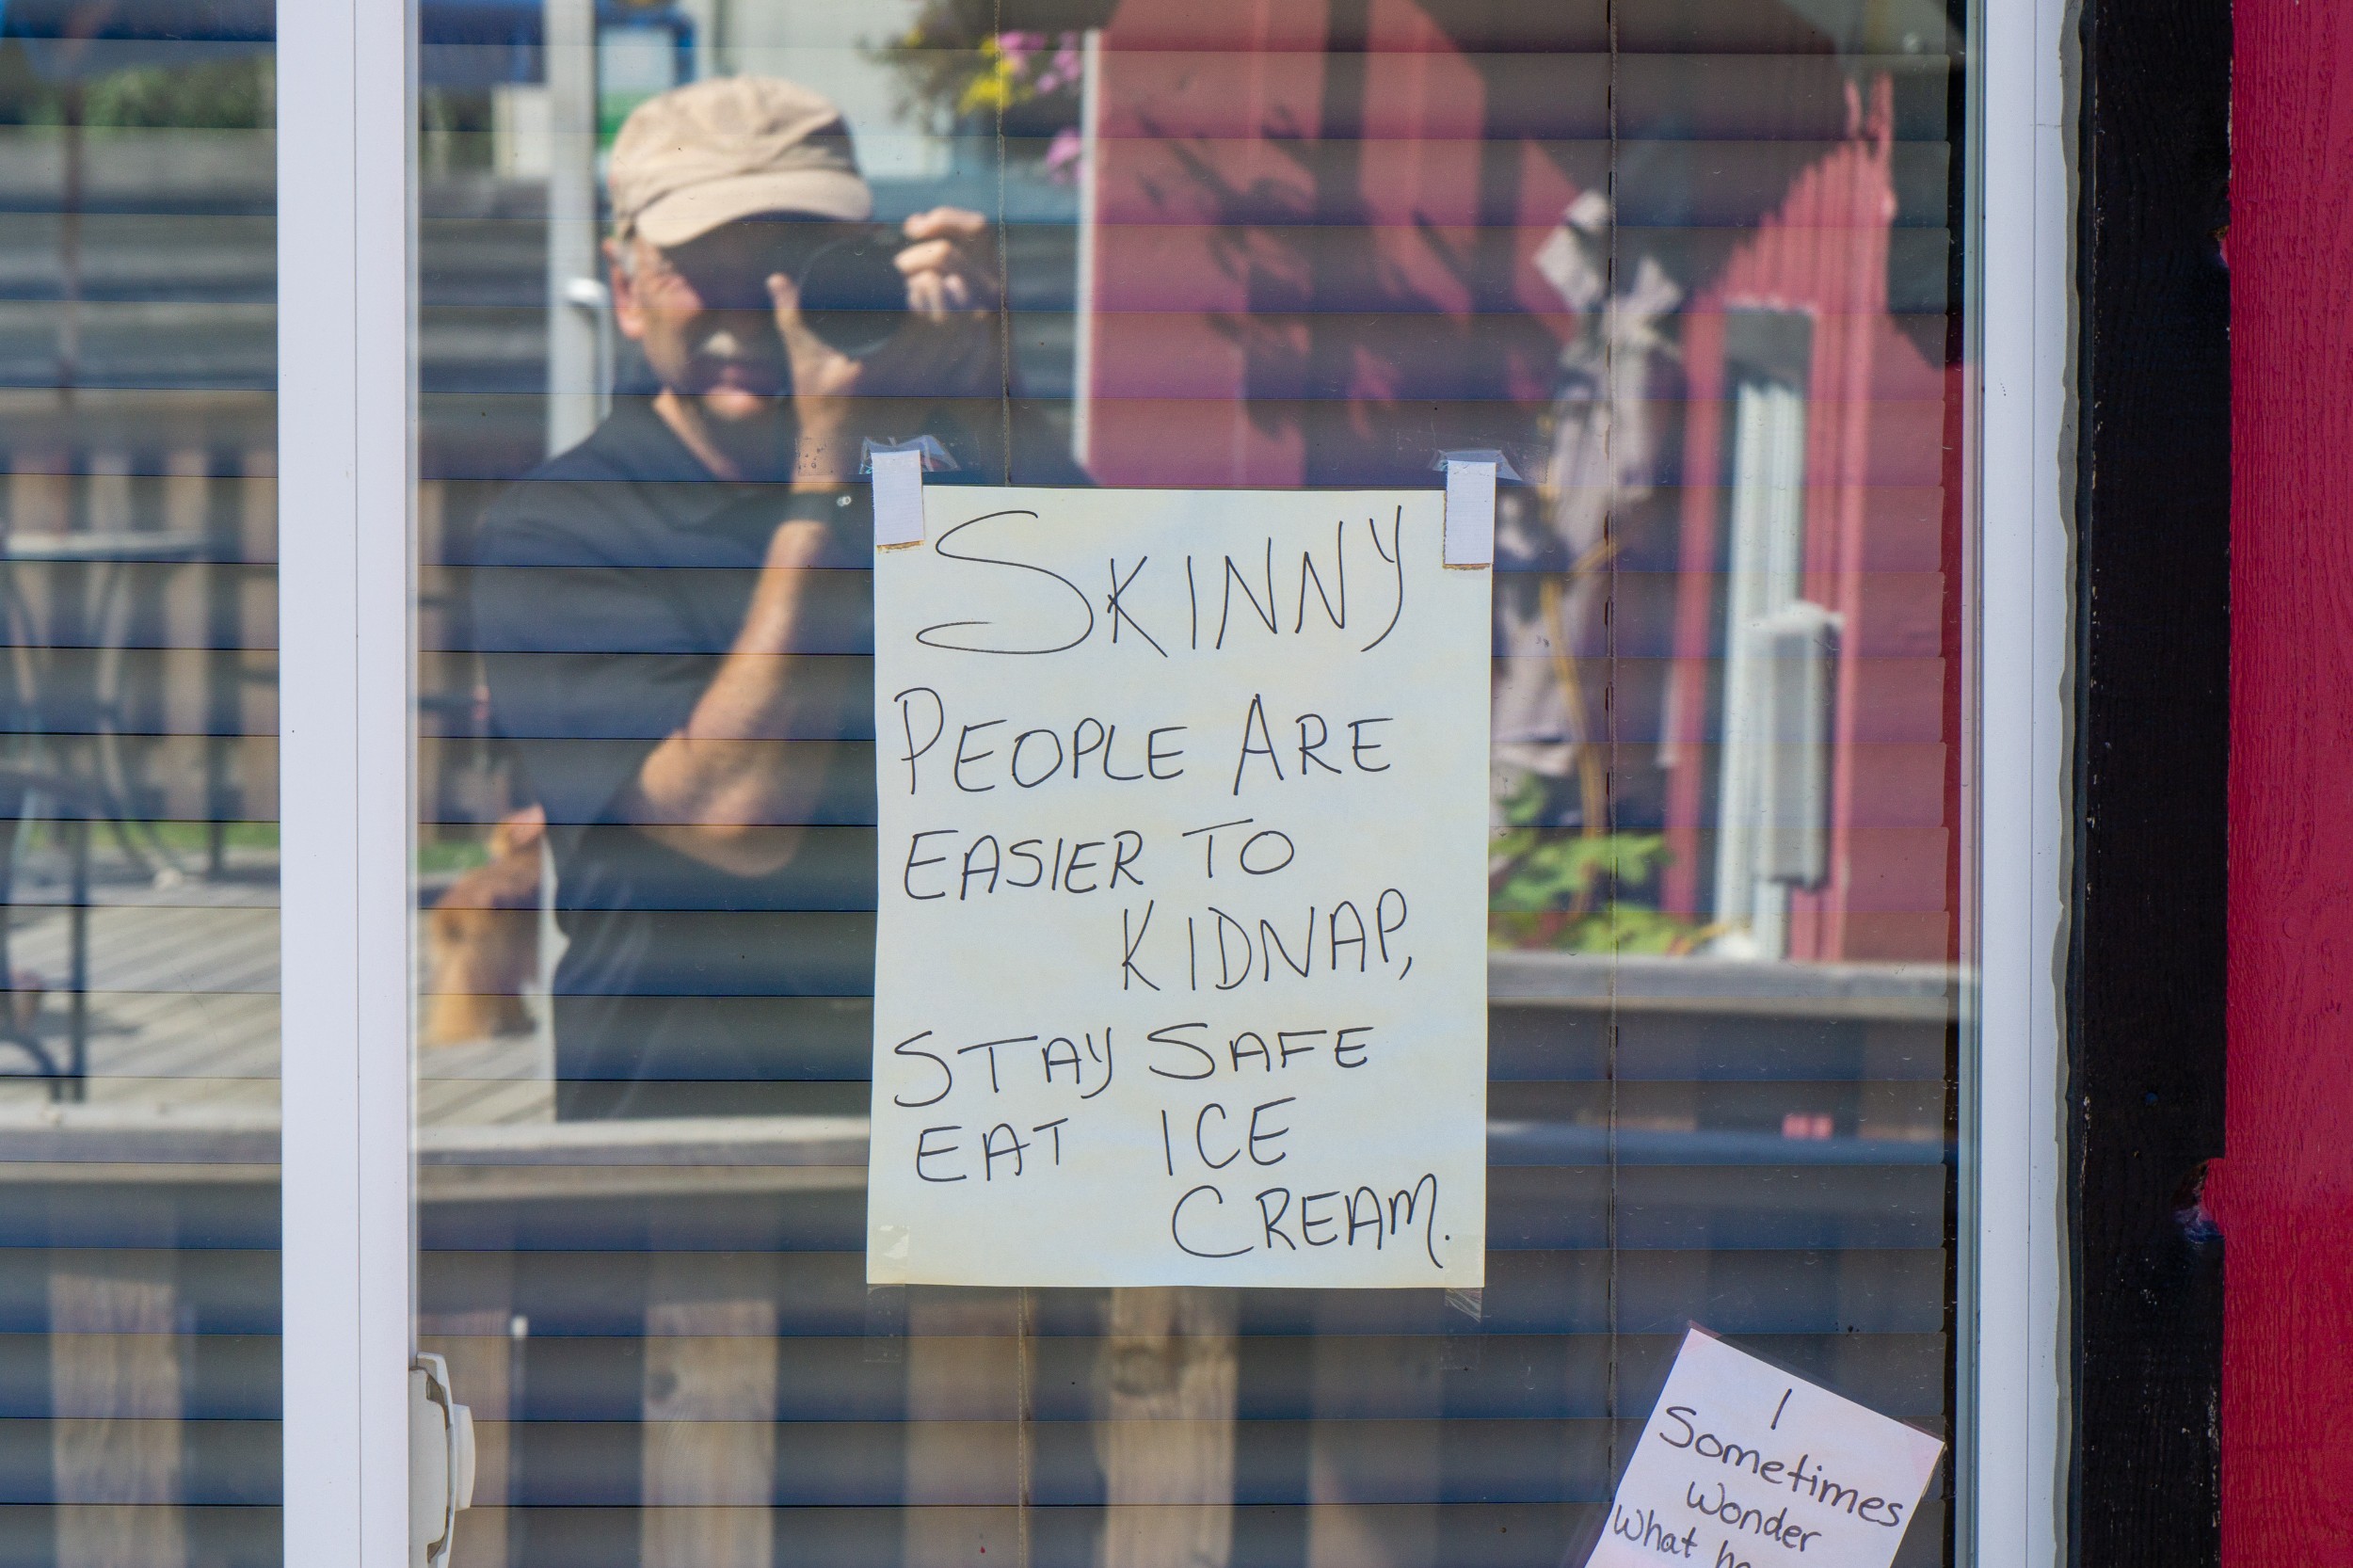 SKINNY
PEOPLE ARE
EASIER TO
KIDNAP,
STAY SAFE
EAT ICE
CREAM.
I
Sometimes
Wonder
What